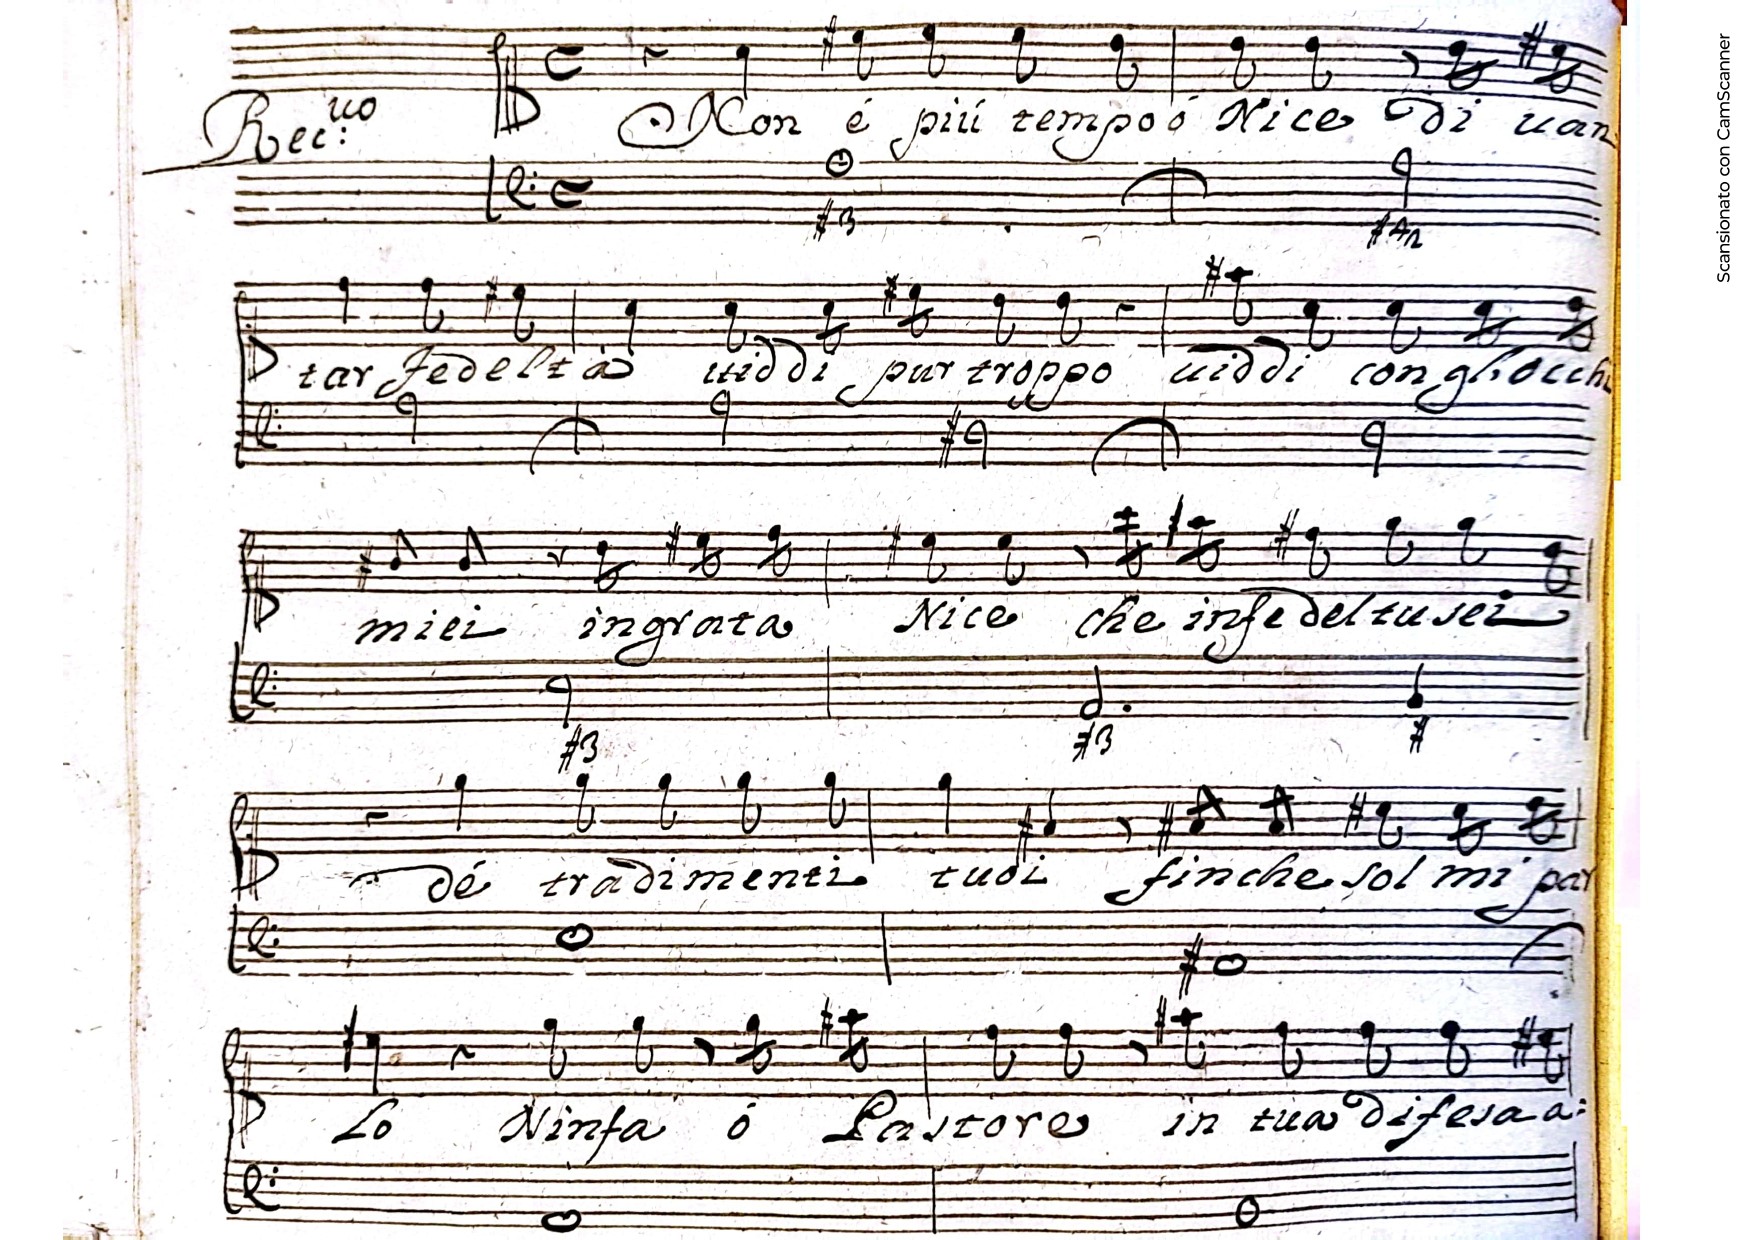 Rec:uo
Non é più tempo ó Nice di uan
#3 #42
tar fedeltà uiddi pur troppo uiddi con gl'occhi
miei ingrata Nice che infedel tu sei
#3 #3 #
dé tradimenti tuoi finche sol mi par
Lo Ninfa ó Pastore in tua difesa a:
Scansionato con CamScanner